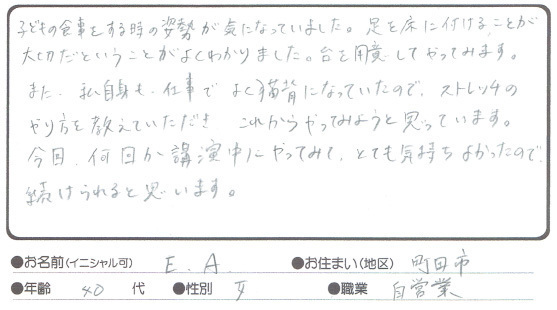 子どもの食事をする時の姿勢が気になっていました。足を床に付けることが
大切だということがよくわかりました。台を用意してやってみます。
また、私自身も、仕事でよく猫背になっていたので、ストレッチの
やり方を教えていただき これからやってみようと思っています。
今回、何回か講演中にやってみて、とても気持ちよかったので、
続けられると思います。
●お名前(イニシャル可) E.A. ●お住まい(地区) 町田市
●年齢 40 代 ●性別 女 ●職業 自営業